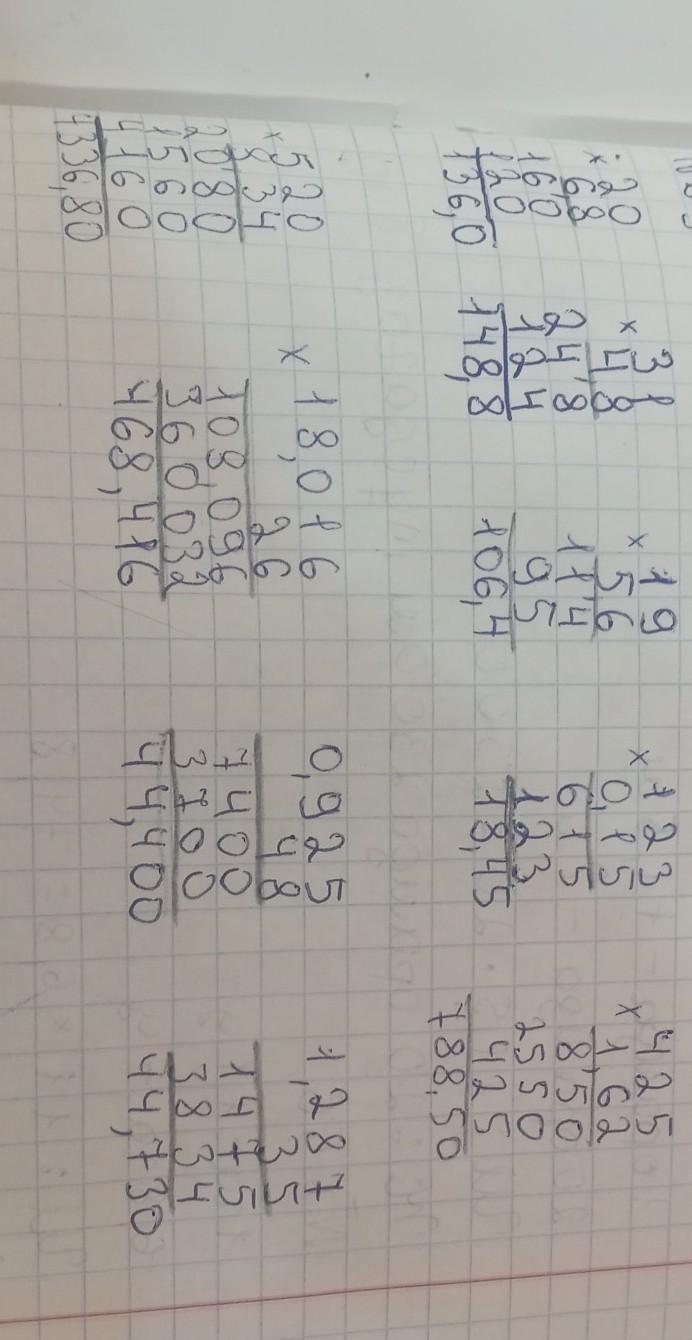 20
× 68
160
120
136,0
31
× 4,8
24,8
124
148,8
19
× 5,6
11,4
95
106,4
123
× 0,15
615
123
18,45
425
× 1,62
850
2550
425
788,50
520
× 8,34
2080
1560
4160
4336,80
18,016
× 26
108,096
360032
468,416
0,925
48
7400
3700
44,400
1,287
35
1475
3834
44,730